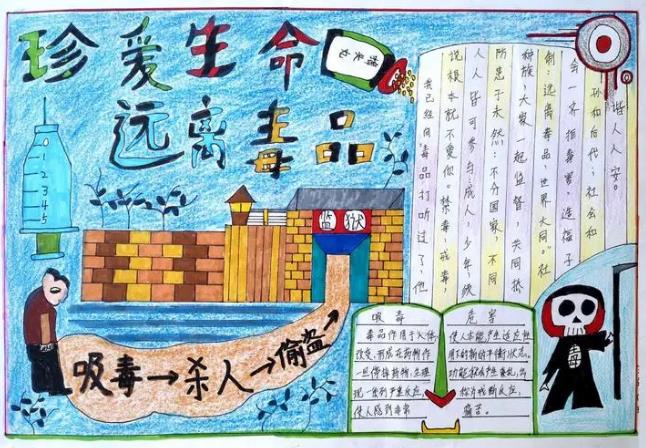 珍爱生命
远离毒品
1
2
3
4
5
监狱
我已经向毒品打听过了，他
说根本就不爱他。禁毒，戒毒，
人人皆可参与：成人，少年，
所患于未然：不分国家，不同
种族，大家一起监督，共同抵
制：远离毒品，世界大同。社
会一齐拒毒害，造福子
孙和后代；社会和
谐人人安。
吸毒→杀人→偷盗→
吸毒
毒品作用于人体，
改变，形成在药物作
一旦停掉药物，生理
现一系列严重反应，
使人感到非常
危害
使人体能产生适应性
用下的新的平衡状态。
功能就会产生紊乱，出
称为戒断反应，
痛苦。
毒